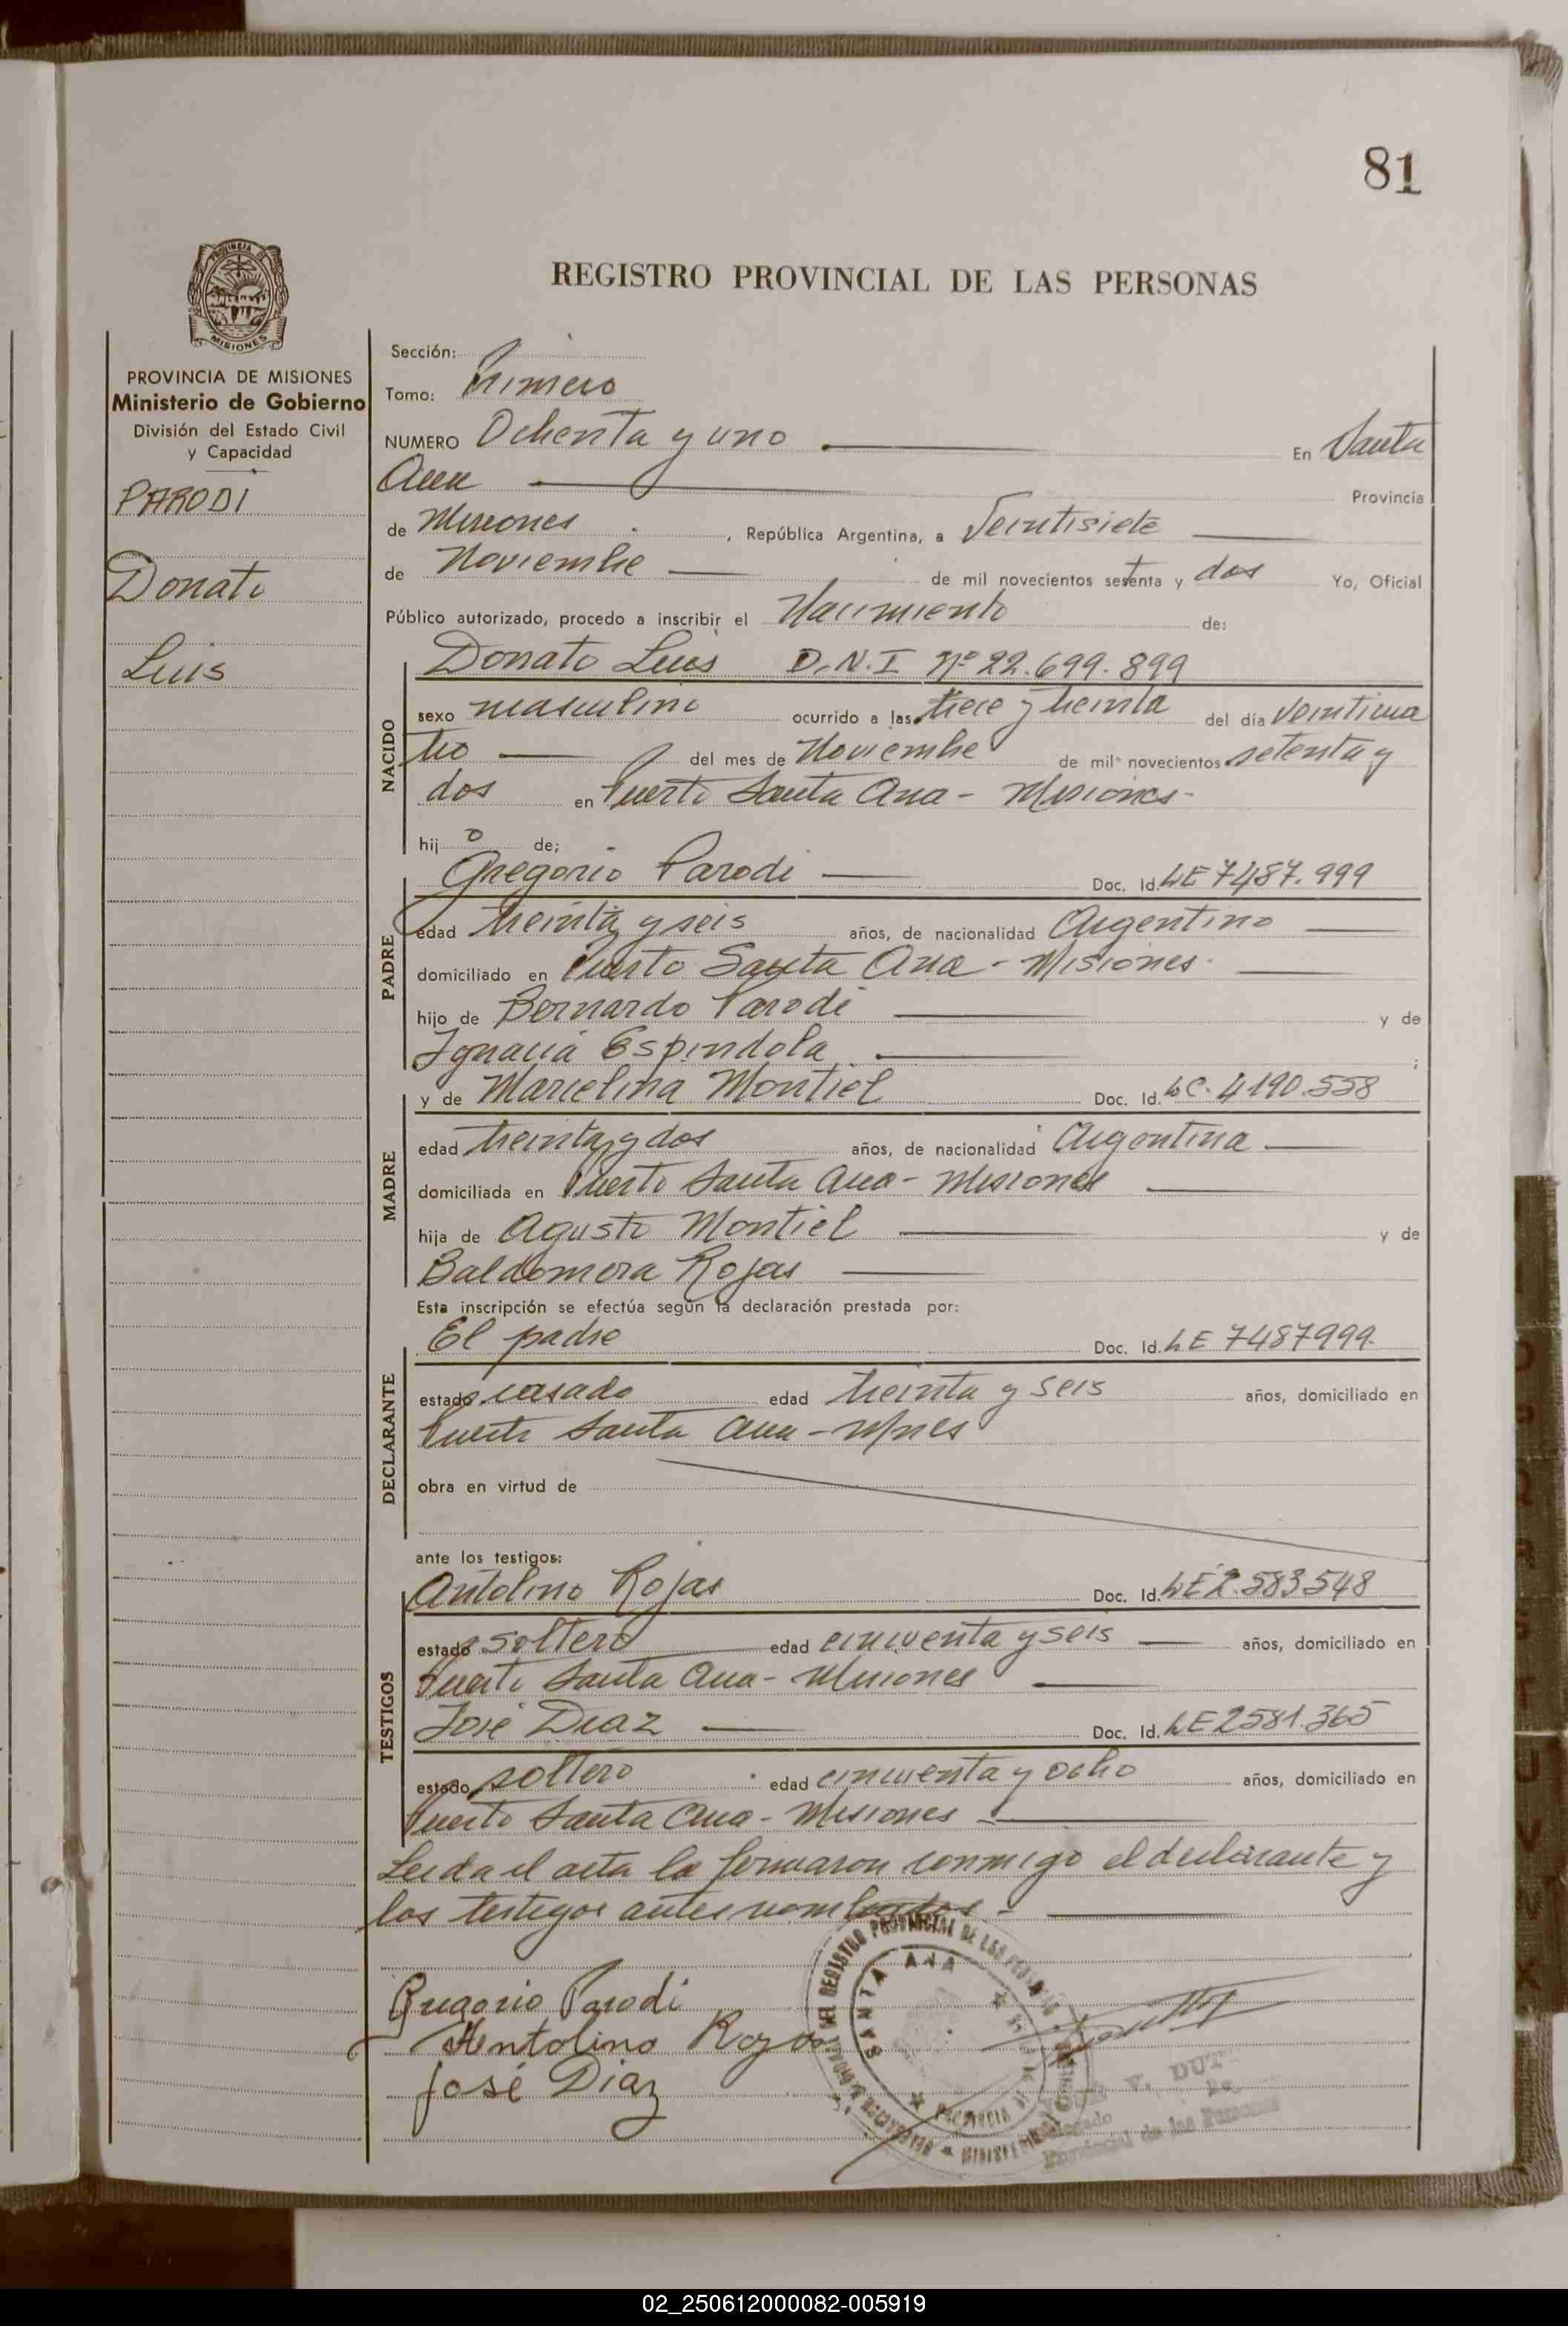 81
REGISTRO PROVINCIAL DE LAS PERSONAS
PROVINCIA DE MISIONES
Ministerio de Gobierno
División del Estado Civil
y Capacidad
PARODI
Donato
Luis
Sección:
Tomo: Primero
NUMERO Ochenta y uno En Santa
Ana Provincia
de Misiones, República Argentina, a Veintisiete
de Noviembre de mil novecientos setenta y dos Yo, Oficial
Público autorizado, procedo a inscribir el Nacimiento de:
NACIDO
Donato Luis D.N.I Nº 22.699.899
sexo masculino ocurrido a las trece y treinta del día veinticua
tro del mes de Noviembre de mil novecientos setenta y
dos en Puerto Santa Ana - Misiones-
hijo de;
PADRE
Gregorio Parodi Doc. Id. LE 7487.999
edad treinta y seis años, de nacionalidad Argentino
domiciliado en Puerto Santa Ana - Misiones-
hijo de Bernardo Parodi y de
Ignacia Espindola ;
MADRE
y de Marcelina Montiel Doc. Id. LC. 4190.558
edad treinta y dos años, de nacionalidad Argentina
domiciliada en Puerto Santa Ana - Misiones
hija de Agusto Montiel y de
Baldomera Rojas
Esta inscripción se efectúa según la declaración prestada por:
DECLARANTE
El padre Doc. Id. LE 7487999
estado casado edad treinta y seis años, domiciliado en
Puerto Santa Ana - Mnes
obra en virtud de
ante los testigos:
TESTIGOS
Antolino Rojas Doc. Id. LE 2.583548
estado soltero edad cincuenta y seis años, domiciliado en
Puerto Santa Ana - Misiones
José Diaz Doc. Id. LE 2581.365
estado soltero edad cincuenta y ocho años, domiciliado en
Puerto Santa Ana - Misiones
Leida el acta la firmaron conmigo el declarante y
los testigos antes nombrados -
Gregorio Parodi
Antolino Rojas
José Diaz
SANTA ANA
V. DUT
Provincial de las Personas
02_250612000082-005919